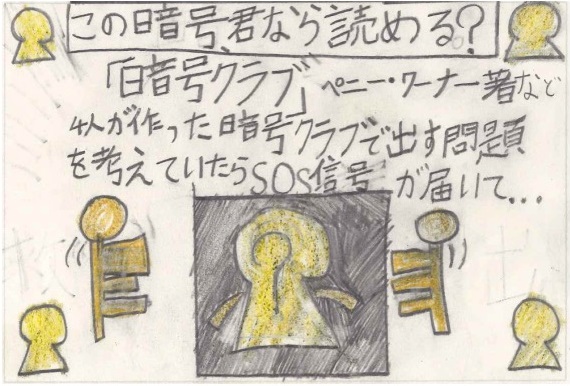 この暗号、君なら読める?
「暗号クラブ」ペニー・ワーナー著など
4人が作った暗号クラブで出す問題
を考えていたらSOS信号が届いて...
出